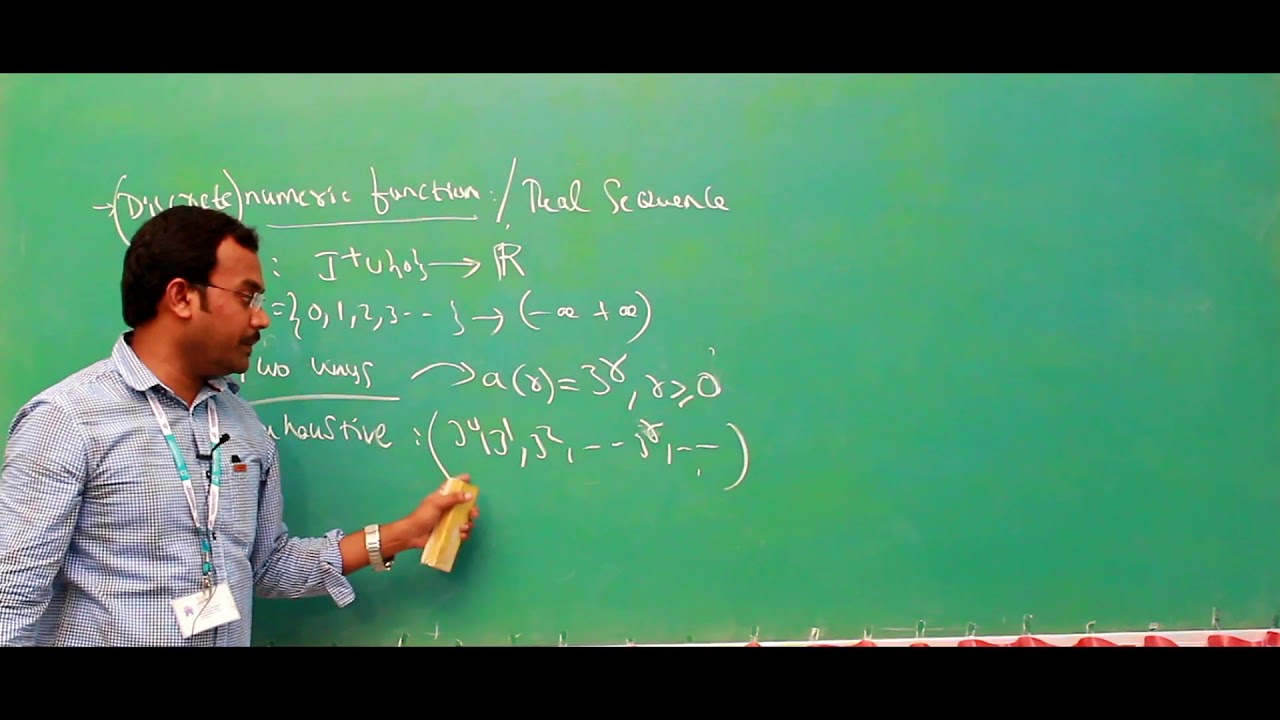 →(Discrete) numeric function: / Real Sequence
: I⁺∪{0} → ℝ
={0,1,2,3-- } → (-∞ +∞)
Two ways → a(r) = 3^r, r ≥ 0
haustive : (3⁰, 3¹, 3², -- 3^r, -- )